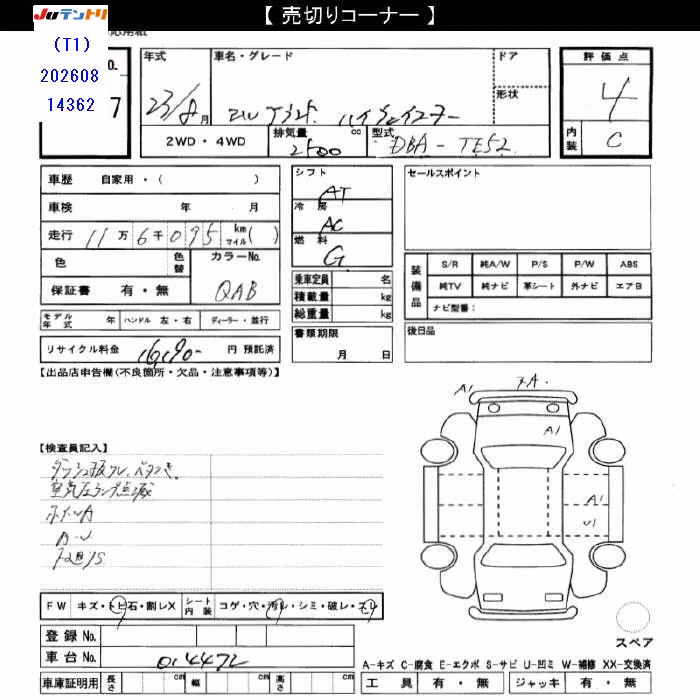 【売切りコーナー】
JUテントリ
(T1)
202608
14362
No.
7
年式
23/8月
車名・グレード
ドア
形状
評価点
4
内装
C
2WD・4WD
排気量
2500
cc
型式
DBA-TE52
車歴 自家用・( )
車検 年 月
走行 11万6千095 km マイル( )
色 色替 カラーNo.
QAB
保証書 有・無
モデル年式 年 ハンドル 左・右 ディーラー・並行
リサイクル料金 16,190- 円 預託済
シフト
AT
冷房
AC
燃料
G
乗車定員 名
積載量 kg
総重量 kg
書類期限
月 日
セールスポイント
装備品
S/R 純A/W P/S P/W ABS
純TV 純ナビ 革シート 外ナビ エアB
ナビ型番:
後日品
【出品店申告欄(不良箇所・欠品・注意事項等)】
【検査員記入】
空気圧ランプ点滅
ホイールA
A・U
A1
A1
A1
U1
FW キズ・トビ石・割レX シート内装 コゲ・穴・汚レ・シミ・破レ・スレ
登録No.
車台No. 014472
車庫証明用 長さ cm 幅 cm 高さ cm
スペア
A-キズ C-腐食 E-エクボ S-サビ U-凹ミ W-補修 XX-交換済
工具 有・無 ジャッキ 有・無